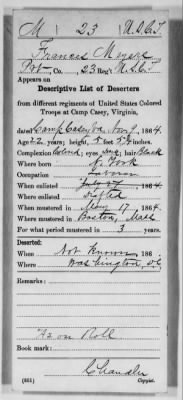 M 23 U.S.C.T.
Francis Meyers
Pvt., Co. , 23 Reg't U.S.C.T.
Appears on
Descriptive List of Deserters
from different regiments of United States Colored
Troops at Camp Casey, Virginia,
dated Camp Casey Va Nov 9, 1864.
Age 22 years; height 5 feet inches.
Complexion Colored; eyes ; hair Black
Where born N. York
Occupation Laborer
When enlisted , 1864.
Where enlisted
When mustered in May 17, 1864.
Where mustered in Boston, Mass
For what period mustered in 3 years.
Deserted:
When Not Known, 186 .
Where Washington, DC
Remarks:
As on Roll
Book mark:
Chandler
(331) Copyist.